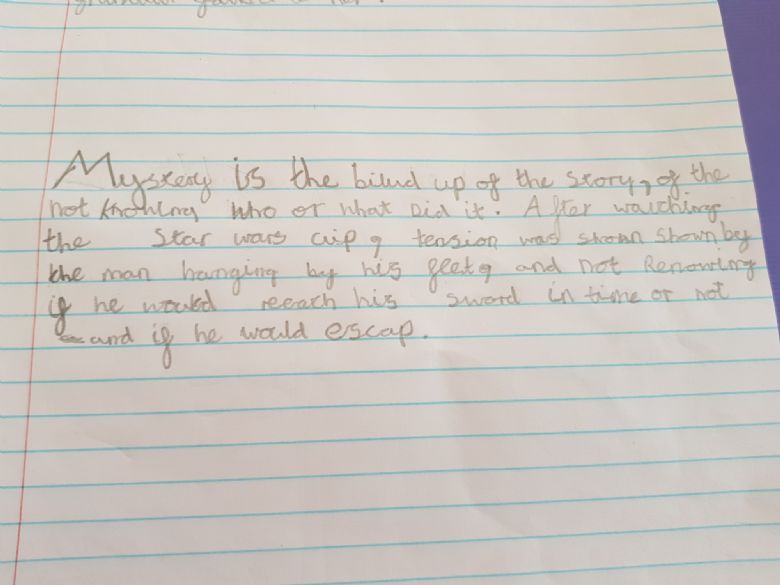 Mystery is the biuld up of the story, of the
not knowing who or what Did it. After watching
the Star wars clip, tension was shown shown by
the man hanging by his feet, and not Renowing
if he would reeach his sword in time or not
and if he would escap.